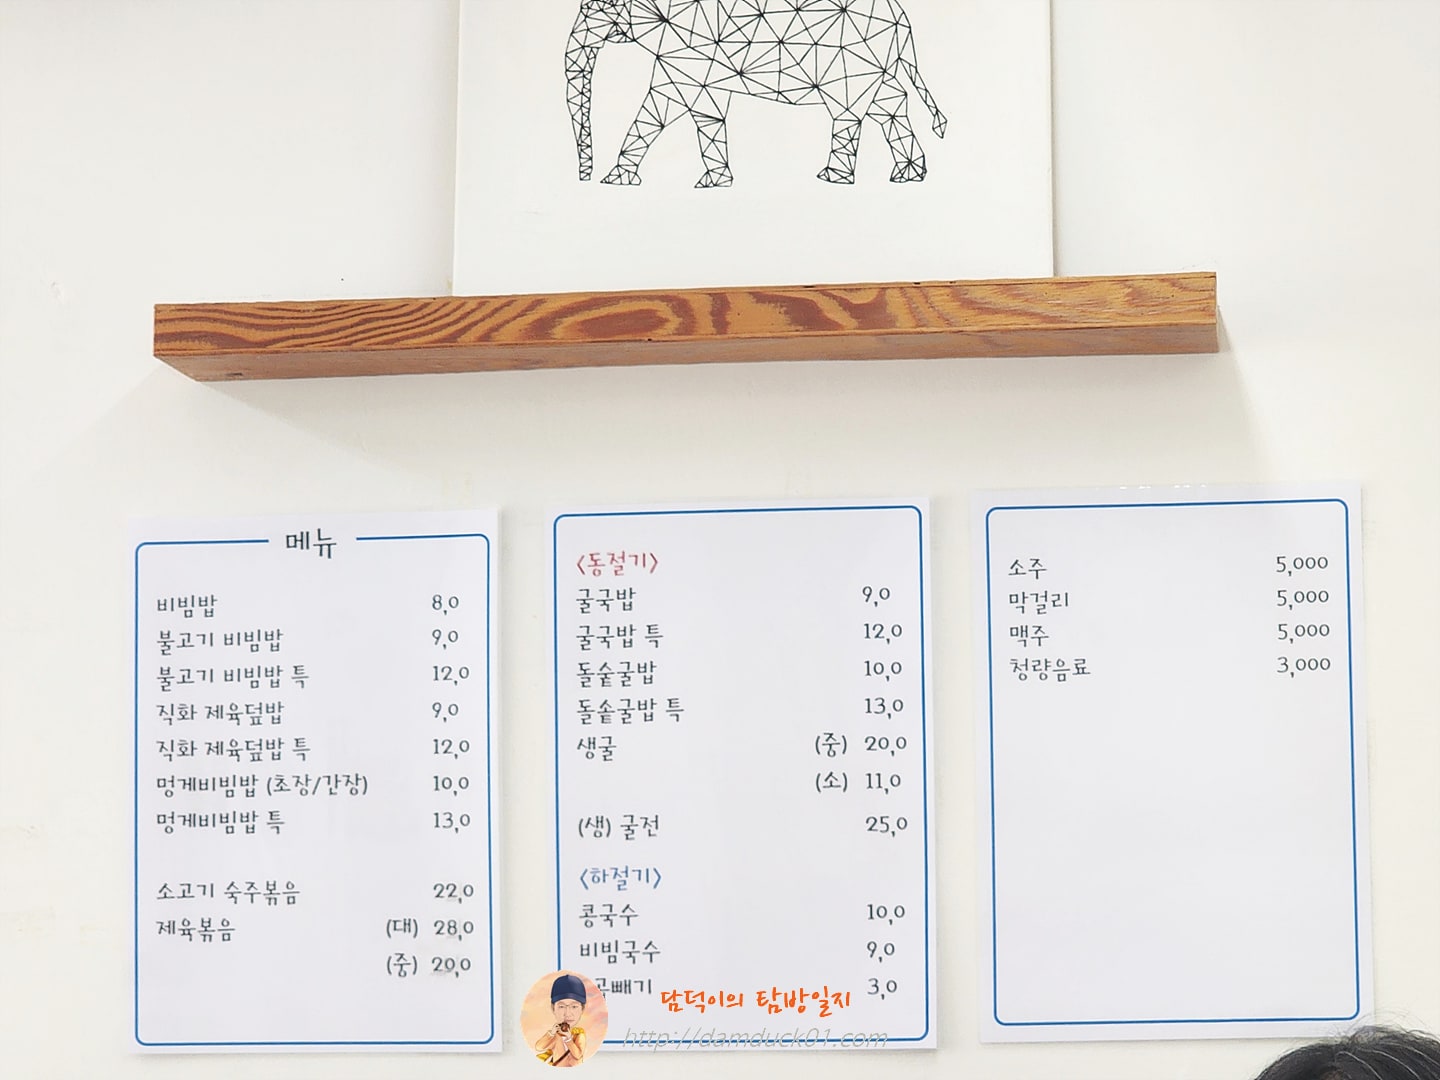 메뉴
비빔밥 8,0
불고기 비빔밥 9,0
불고기 비빔밥 특 12,0
직화 제육덮밥 9,0
직화 제육덮밥 특 12,0
멍게비빔밥 (초장/간장) 10,0
멍게비빔밥 특 13,0
소고기 숙주볶음 22,0
제육볶음 (대) 28,0
(중) 20,0
<동절기>
굴국밥 9,0
굴국밥 특 12,0
돌솥굴밥 10,0
돌솥굴밥 특 13,0
생굴 (중) 20,0
(소) 11,0
(생) 굴전 25,0
<하절기>
콩국수 10,0
비빔국수 9,0
빼기 3,0
소주 5,000
막걸리 5,000
맥주 5,000
청량음료 3,000
담덕이의 탐방일지
http://damduck01.com